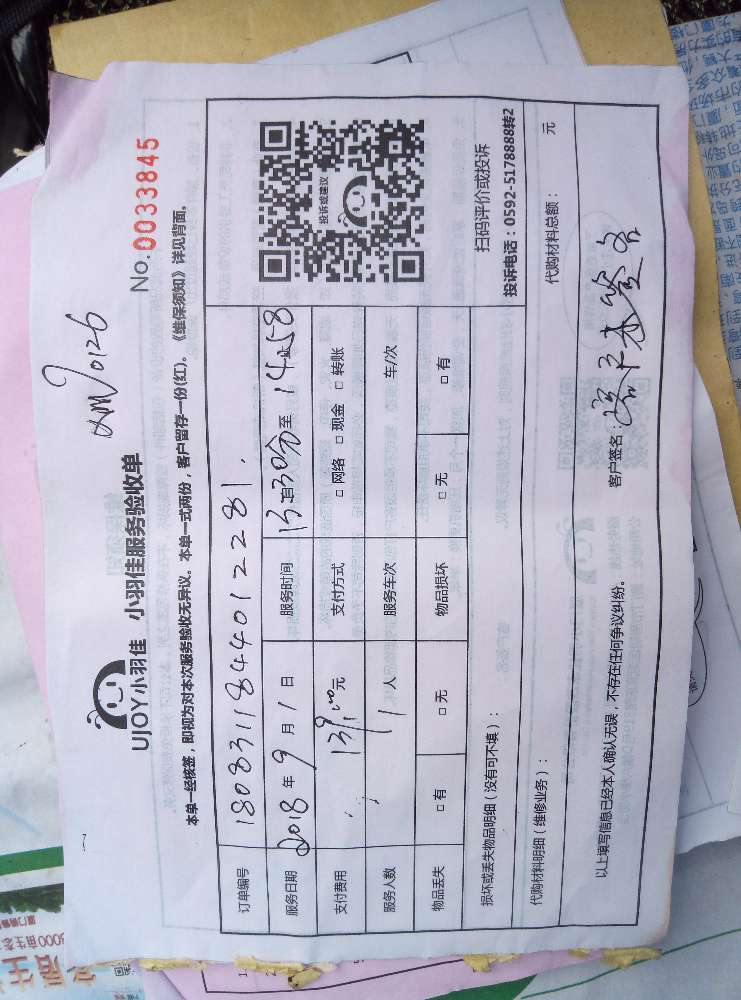 UJOY小羽佳 小羽佳服务验收单
No. 0033845
本单一经核签，即视为对本次服务验收无异议。本单一式两份，客户留存一份(红)。《维保须知》详见背面。
订单编号 180831184401 2281.
服务日期 2018年9月1日 服务时间 13时30分至14:58
支付费用 139.00元 支付方式 □ 网络 □ 现金 □ 转账
服务人数 1人 服务车次 车/次
物品丢失 □ 有 □ 无 物品损坏 □ 无 □ 有
投诉或建议
扫码评价或投诉
投诉电话：0592-5178888转2
损坏或丢失物品明细（没有可不填）：
代购材料明细（维修业务）： 代购材料总额： 元
以上填写信息已经本人确认无误，不存在任何争议纠纷。
客户签名：